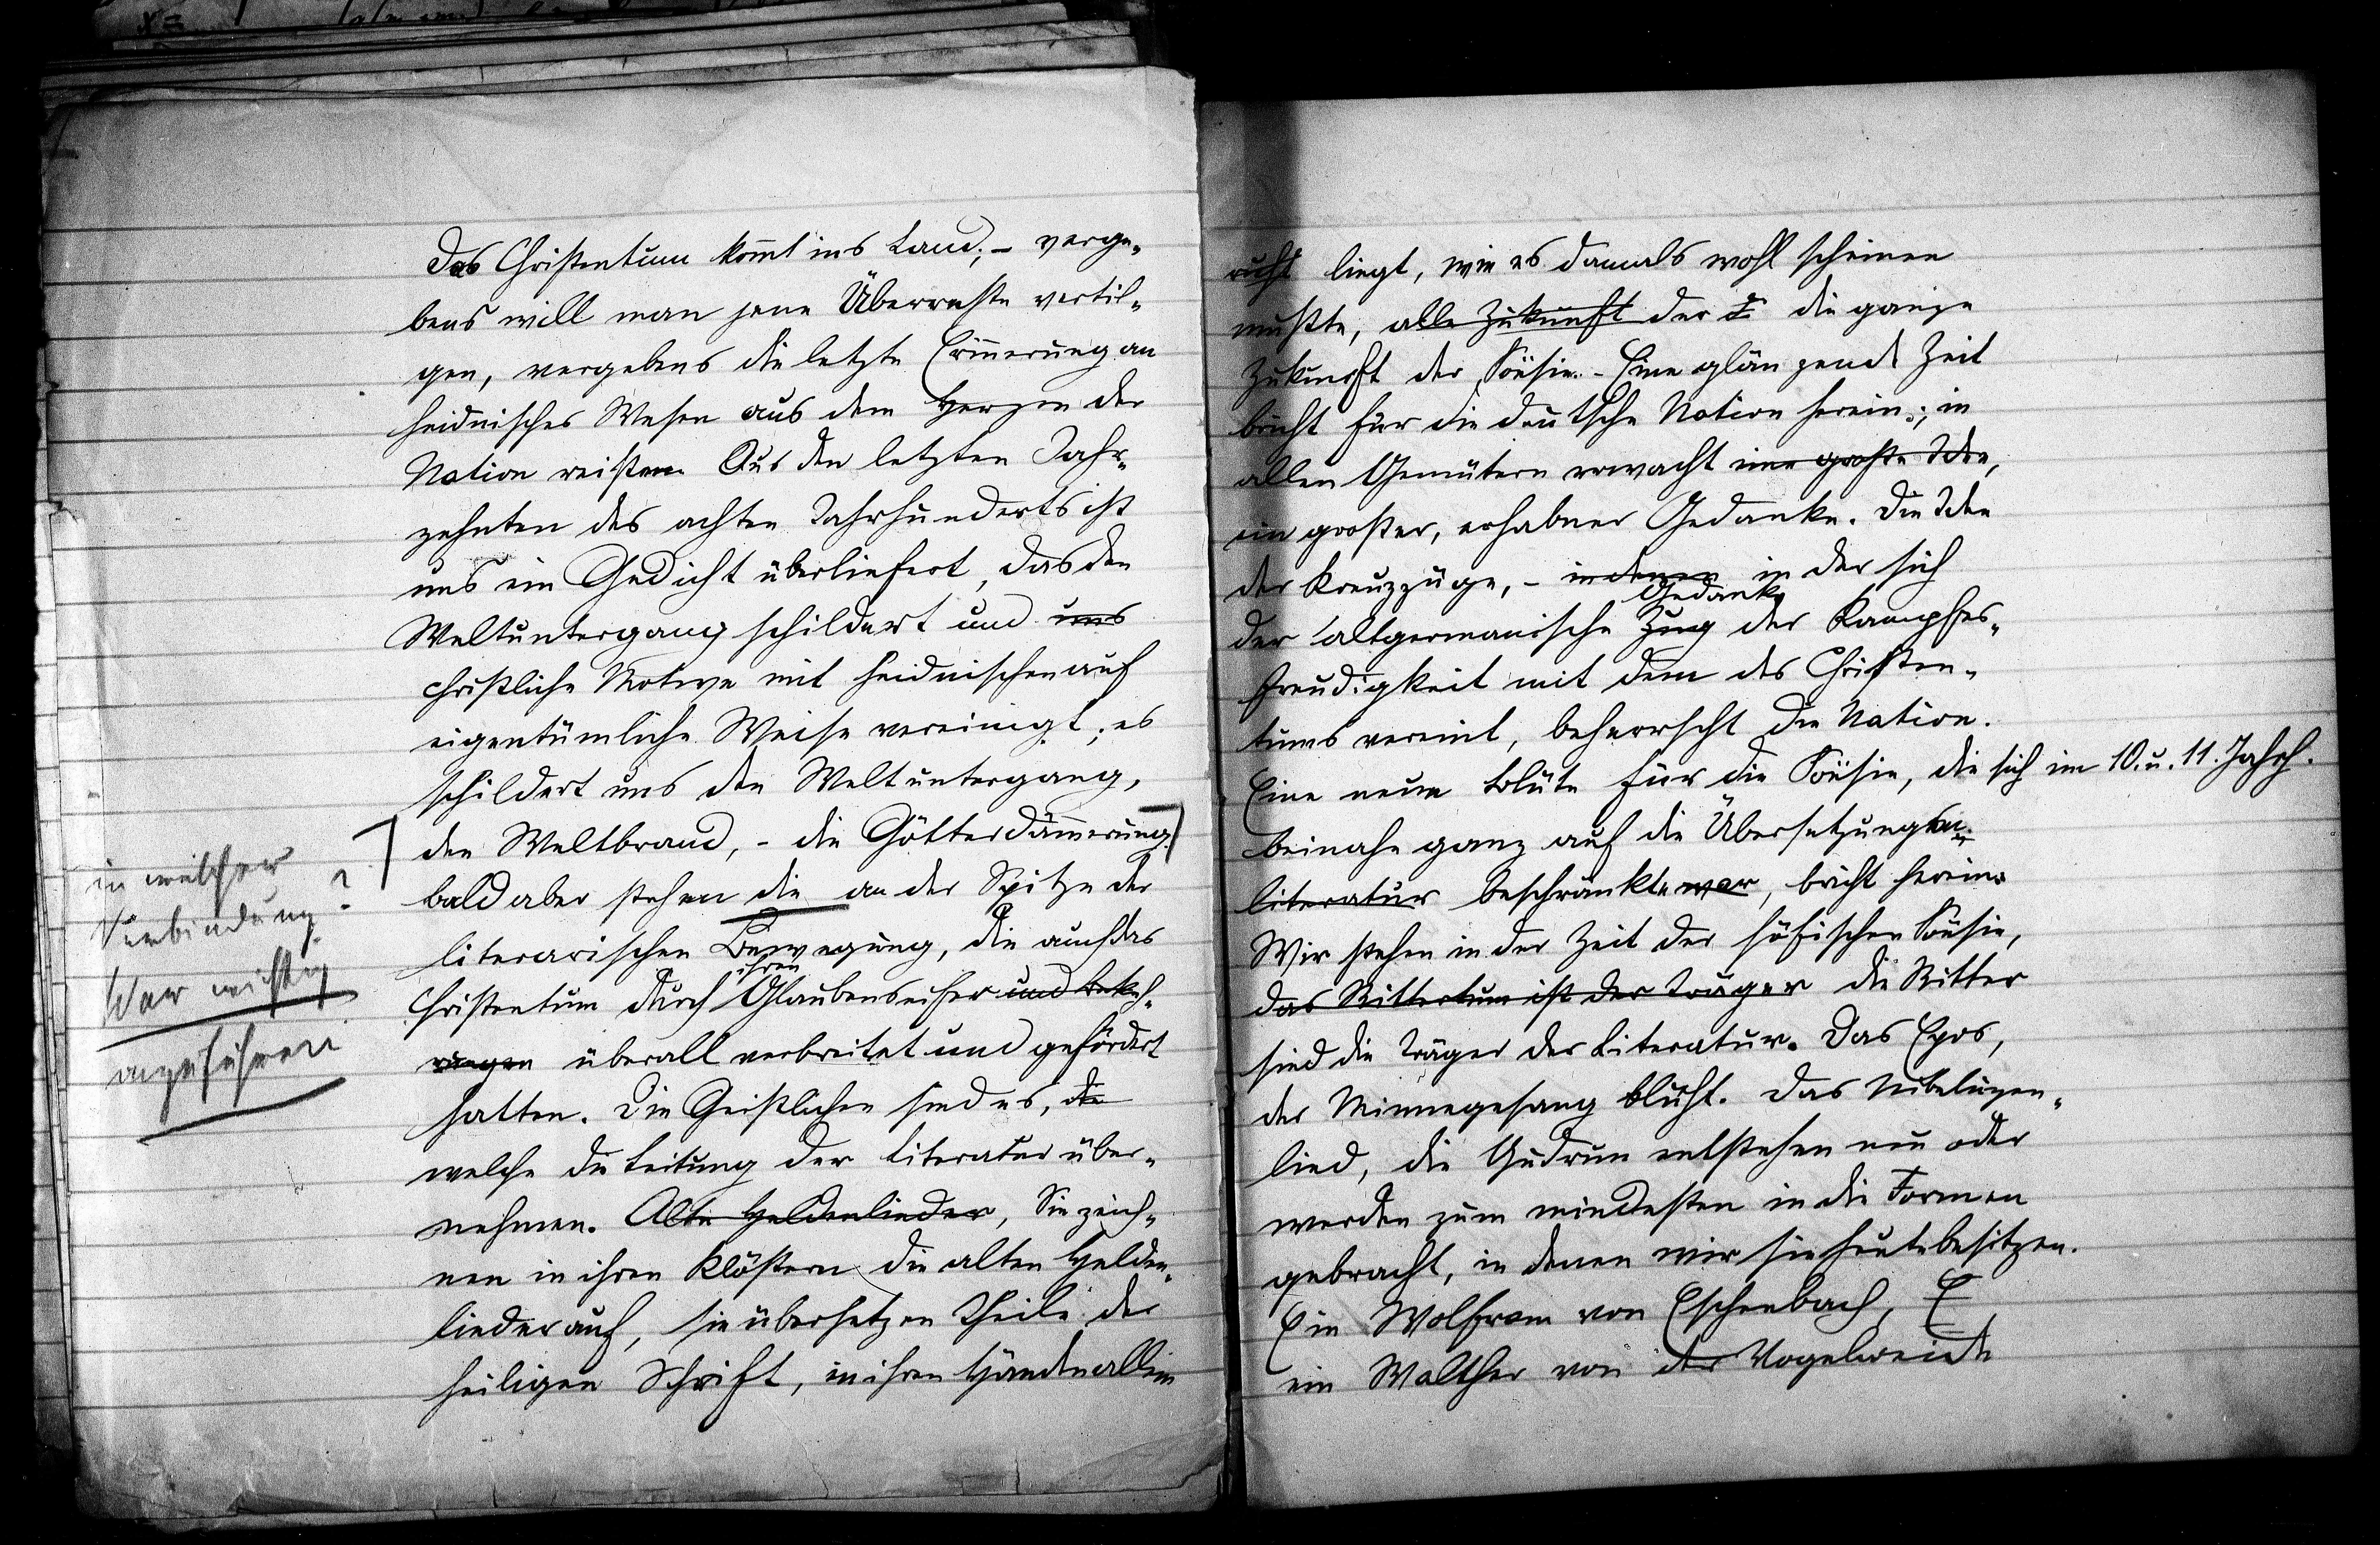 Das Christentum kommt ins Land; - verge-
bens will man jene Überreste vertil-
gen, vergebens die letzte Erinnerung an
heidnisches Wesen aus dem Herzen der
Nation reißen. Aus den letzten Jahr-
zehnten des achten Jahrhunderts ist
uns ein Gedicht überliefert, das den
Weltuntergang schildert und uns
christliche Motive mit heidnischen auf
eigentümliche Weise vereinigt; es
schildert uns den Weltuntergang,
den Weltbrand, - die Götterdämmerung.
bald aber stehen die an der Spitze der
literarischen Bewegung, die auch das
ihren
Christentum durch Glaubenseifer und Bekeh-
rungen überall verbreitet und gefördert
hatten. Die Geistlichen sind es, die
welche die Leitung der Literatur über-
nehmen. Alte Heldenlieder, Sie zeich-
nen in ihren Klöstern die alten Helden-
lieder auf, sie übersetzen Theile der
heiligen Schrift, in ihren Händen allein
in welcher
Verbindung?
War wichtig
anzuführen
ruht liegt, wie es damals wohl scheinen
mußte, alle Zukunft der d die ganze
Zukunft der Poësie. - Eine glänzende Zeit
bricht für die deutsche Nation herein; in
allen Gemütern erwacht eine große Idee,
ein großer, erhabner Gedanke. Die Idee
der Kreuzzüge, - in denen in der sich
Gedanke
der altgermanische Zug der Kampfes-
freudigkeit mit dem des Christen-
tums vereint, beherrscht die Nation.
Eine neue Blüte für die Poësie, die sich im 10. u. 11. Jahrh.
beinahe ganz auf die Übersetzungen
literatur beschränkte war, bricht herein.
Wir stehen in der Zeit der höfischen Poësie,
das Rittertum ist der Träger die Ritter
sind die Träger der Literatur. Das Epos,
der Minnegesang blüht. Das Nibelungen-
lied, die Gudrun entstehen neu oder
werden zum mindesten in die Formen
gebracht, in denen wir sie heute besitzen.
Ein Wolfram von Eschenbach, E
ein Walther von der Vogelweide